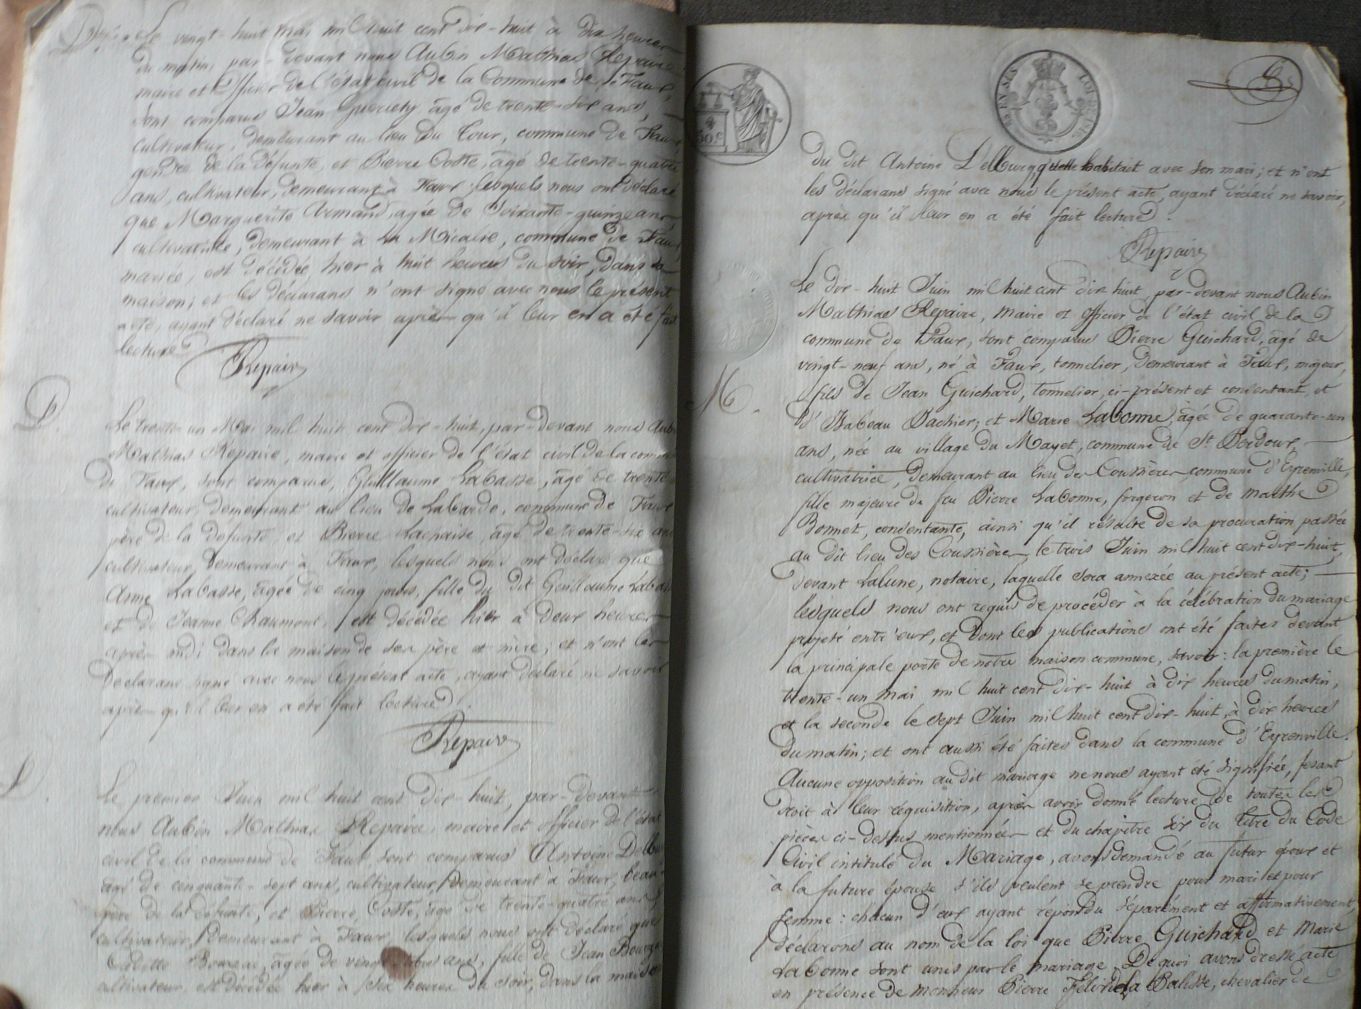 Le vingt-huit mai mil huit cent dix-huit à dix heures
du matin, par-devant nous Aubin Mathias Repaire
maire et officier de l'état civil de la Commune de Faux,
sont comparus Jean âgé de trente-six ans,
cultivateur, demeurant au lieu du Tour, commune de Faux
gendre de la défunte, et Pierre Coste, âgé de trente-quatre
ans, cultivateur, demeurant à Faux; lesquels nous ont déclaré
que Marguerite Armand, âgée de soixante-quinze ans
cultivatrice, demeurant à la Micalie, commune de Faux,
mariée, est décédée hier à huit heures du soir, dans sa
maison; et les déclarans n'ont signé avec nous le présent
acte, ayant déclaré ne savoir après qu'il leur en a été fait
lecture
Repaire
D
Le trente-un Mai mil huit cent dix-huit, par-devant nous Aubin
Mathias Repaire, maire et officier de l'état civil de la commune
de Faux, sont comparus, Guillaume Labasse, âgé de trente
cultivateur, demeurant au lieu de Labarde, commune de Faux
père de la défunte, et Pierre Lachaise, âgé de trente-six ans
cultivateur, demeurant à Faux, lesquels nous ont déclaré que
Anne Labasse, âgée de cinq jours, fille du dit Guillaume Labasse
et de Jeanne Chaumont, est décédée hier à deux heures
après midi dans la maison de ses père et mère; et n'ont les
déclarans signé avec nous le présent acte, ayant déclaré ne savoir
après qu'il leur en a été fait lecture.
Repaire
Le premier Juin mil huit cent dix-huit, par-devant
nous Aubin Mathias Repaire, maire et officier de l'état
civil de la commune de Faux sont comparus Antoine
âgé de cinquante-sept ans, cultivateur, demeurant à Faux, beau-
père de la défunte, et Pierre Coste, âgé de trente-quatre ans
cultivateur, demeurant à Faux, lesquels nous ont déclaré que
âgée de vingt ans, fille de Jean
cultivateur, est décédée hier à six heures du soir, dans la maison
du dit Antoine qu'elle habitait avec son mari; et n'ont
les déclarans signé avec nous le présent acte, ayant déclaré ne savoir,
après qu'il leur en a été fait lecture.
Repaire
M.
Le dix-huit Juin mil huit cent dix huit, par-devant nous Aubin
Mathias Repaire, maire et officier de l'état civil de la
commune de Faux, sont comparus Pierre Guichard, âgé de
vingt-neuf ans, né à Faux, tonnelier, demeurant à Faux, majeur,
fils de Jean Guichard, tonnelier, ci-présent et consentant, et
d'Isabeau Pachier; et Marie Labonne, âgée de quarante-un
ans, née au village du Mayet, commune de St Perdoux,
cultivatrice, demeurant au lieu des Coussière, commune d'Eyrenville,
fille majeure de feu Pierre Labonne, forgeron et de Marthe
Bonnet, consentante, ainsi qu'il résulte de sa procuration, passée
au dit lieu des Coussière le trois Juin mil huit cent dix-huit,
devant Lalune, notaire, laquelle sera annexée au présent acte;
lesquels nous ont requis de procéder à la célébration du mariage
projeté entr'eux, et dont les publications ont été faites devant
la principale porte de notre maison commune, savoir: la première le
trente-un mai mil huit cent dix-huit à dix heures du matin,
et la seconde le sept Juin mil huit cent dix-huit, à dix heures
du matin; et ont aussi été faites dans la commune d'Eyrenville.
Aucune opposition au dit mariage ne nous ayant été signifiée, fesant
droit à leur réquisition, après avoir donné lecture de toutes les
pièces ci-dessus mentionnées et du chapitre six du titre du Code
Civil intitulé du Mariage, avons demandé au futur époux et
à la future épouse s'ils veulent se prendre pour mari et pour
femme: chacun d'eux ayant répondu séparément et affirmativement
déclarons au nom de la loi que Pierre Guichard et Marie
Labonne sont unis par le mariage. De quoi avons dressé acte
en présence de monsieur Pierre de la Batisse, chevalier de